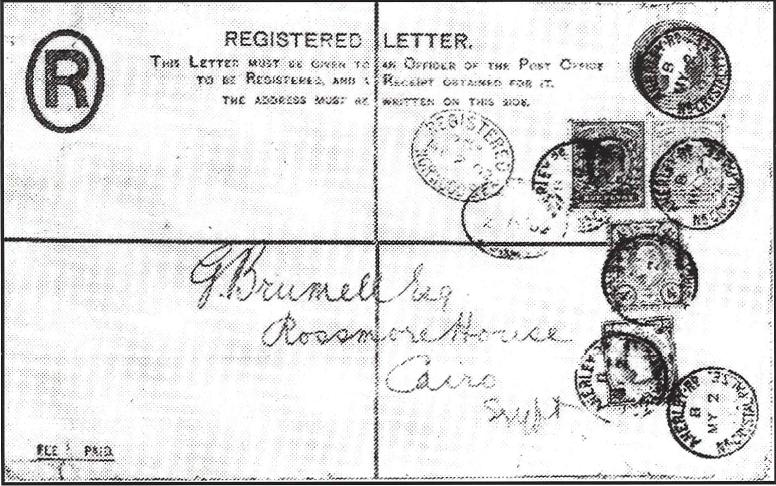 R
REGISTERED LETTER.
THIS LETTER MUST BE GIVEN TO AN OFFICER OF THE POST OFFICE
TO BE REGISTERED, AND A RECEIPT OBTAINED FOR IT.
THE ADDRESS MUST BE WRITTEN ON THIS SIDE.
REGISTERED
ANERLEY RD
8
MY 2
NR CRYSTAL PALACE
ANERLEY RD
8
MY 2
G. Brumell Esq
Rossmore House
Cairo
Egypt
ANERLEY RD
8
MY 2
FEE PAID.